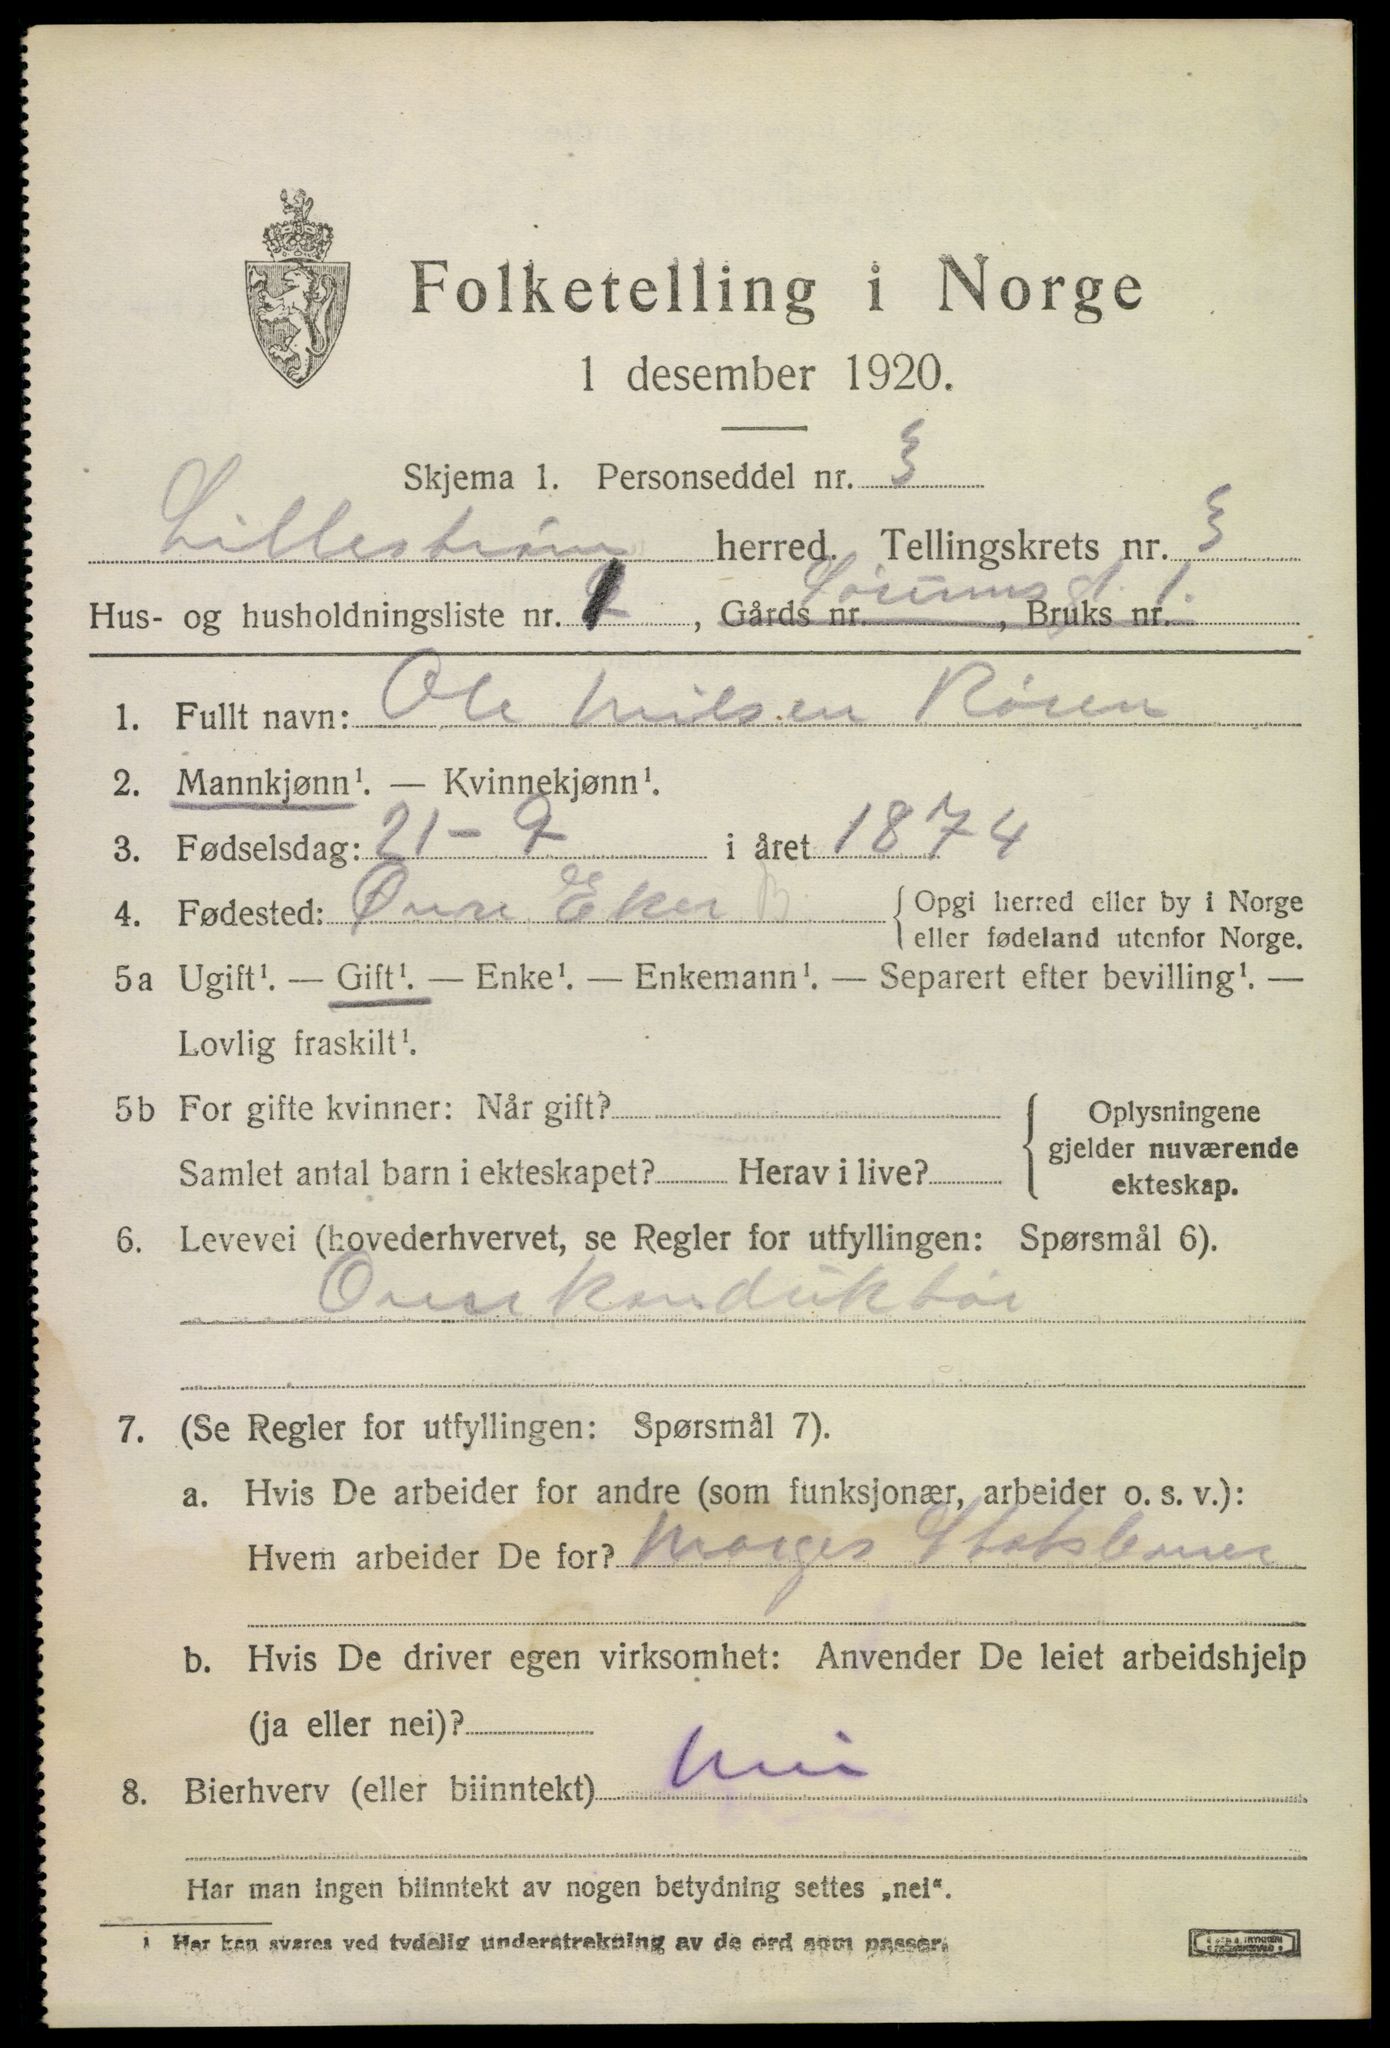 Folketelling i Norge
1 desember 1920.
Skjema 1. Personseddel nr. 3
Lillestrøm herred. Tellingskrets nr. 3
Hus- og husholdningsliste nr. 1, Gårds nr. , Bruks nr. Sørumsgt. 1.
1. Fullt navn: Ole Nilsen
2. Mannkjønn¹. — Kvinnekjønn¹.
3. Fødselsdag: 21 - 9 i året 1874
4. Fødested: Øvre Eker B { Opgi herred eller by i Norge
eller fødeland utenfor Norge.
5a Ugift¹. — Gift¹. — Enke¹. — Enkemann¹. — Separert efter bevilling¹. —
Lovlig fraskilt¹.
5b For gifte kvinner: Når gift?
Samlet antal barn i ekteskapet? Herav i live?
Oplysningene
gjelder nuværende
ekteskap.
6. Levevei (hovederhvervet, se Regler for utfyllingen: Spørsmål 6).
Overkonduktør
7. (Se Regler for utfyllingen: Spørsmål 7).
a. Hvis De arbeider for andre (som funksjonær, arbeider o. s. v.):
Hvem arbeider De for? Norges Statsbaner
b. Hvis De driver egen virksomhet: Anvender De leiet arbeidshjelp
(ja eller nei)?
8. Bierhverv (eller biinntekt) Nei
Har man ingen biinntekt av nogen betydning settes „nei“.
¹ Her kan svares ved tydelig understrekning av de ord som passer.